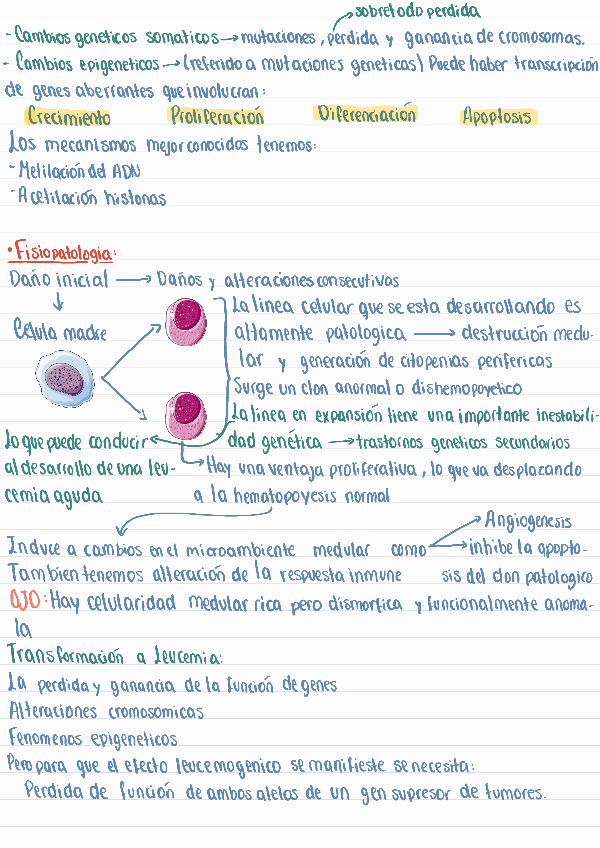 sobretodo perdida
- Cambios geneticos somaticos → mutaciones, perdida y ganancia de cromosomas.
- Cambios epigeneticos → (referido a mutaciones geneticas) Puede haber transcripción
de genes aberrantes que involucran:
Crecimiento Proliferación Diferenciación Apoptosis
Los mecanismos mejor conocidos tenemos:
- Metilación del ADN
- Acetilación histonas
• Fisiopatologia:
Daño inicial → Daños y alteraciones consecutivas
Célula madre
La linea celular que se esta desarrollando es
altamente patologica → destrucción medu-
lar y generación de citopenias perifericas
Surge un clon anormal o dishemopoyetico
La linea en expansión tiene una importante inestabili-
dad genética → trastornos geneticos secundarios
Lo que puede conducir
al desarrollo de una leu-
cemia aguda
Hay una ventaja proliferativa, lo que va desplazando
a la hematopoyesis normal
Induce a cambios en el microambiente medular como
Angiogenesis
inhibe la apopto-
sis del clon patologico
Tambien tenemos alteración de la respuesta inmune
OJO: Hay celularidad medular rica pero dismorfica y funcionalmente anoma-
la
Transformación a leucemia:
La perdida y ganancia de la función de genes
Alteraciones cromosomicas
Fenomenos epigeneticos
Pero para que el efecto leucemogenico se manifieste se necesita:
Perdida de función de ambos alelos de un gen supresor de tumores.